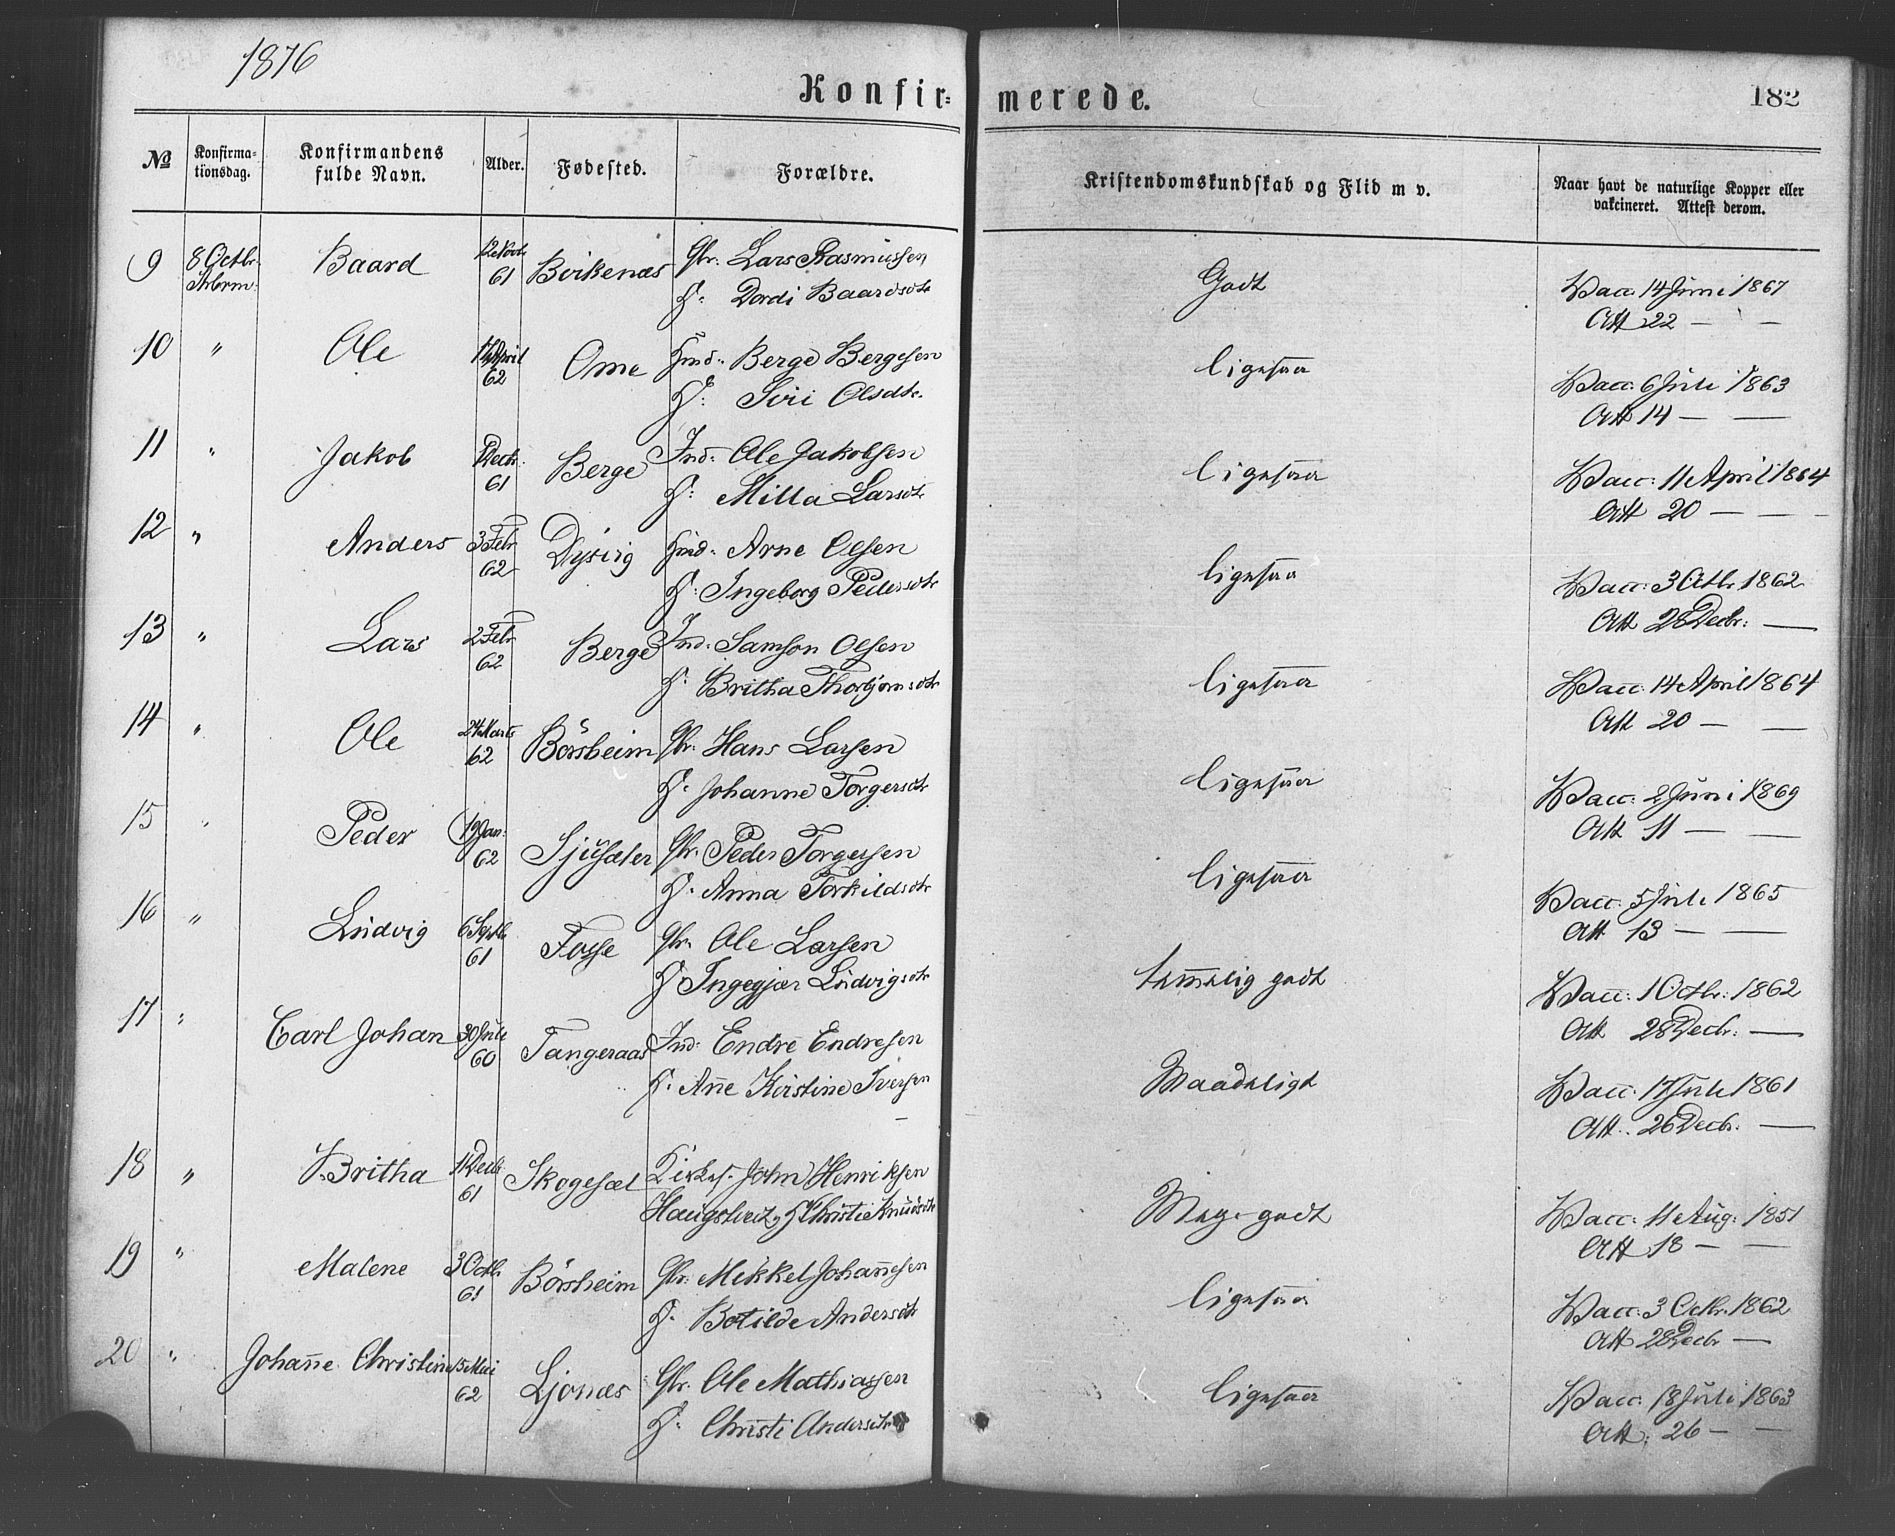 1876
Konfir= merede. 182
No Konfirma- Konfirmandens Alder. Fødested. Forældre. Kristendomskundskab og Flid m v. Naar havt de naturlige Kopper eller
tionsdag. fulde Navn. vakcineret. Attest derom.
9 8 Octbr. Baard 12 Novb. Birkenæs Gbr. Lars Rasmussen Godt Vacc: 14 Juni 1867
61 H: Dordi Baardsdtr Att 22 — —
10 " Ole April Ome Hmd: Berge Bergesen ligesaa Vacc: 6 Juli 1863
62 H: Siri Olsdtr. Att 14 — —
11 " Jakob Decbr. Berge Ind: Ole Jakobsen ligesaa Vacc: 11 April 1864
61 H: Milla Larsdtr Att 20 — —
12 " Anders 3 Febr Dysvig Hmd: Arne Olsen ligesaa Vacc: 3 Octbr. 1862
62 H: Ingeborg Pedersdtr Att 28 Decbr: —
13 " Lars 2 Febr Berge Ind: Samson Olsen ligesaa Vacc: 14 April 1864
62 H: Britha Thorbjørnsdtr Att 20 — —
14 " Ole 24 Marts Börsheim Gbr. Hans Larsen ligesaa Vacc: 2 Juni 1869
62 H: Johanne Torgersdtr Att 11 — —
15 " Peder 19 Jan: Sjusæter Gbr. Peder Torgersen ligesaa Vacc: 5 Juli 1865
62 H: Anna Torkildsdtr Att 13 — —
16 " Ludvig 6 Septb. Fosse Gbr. Ole Larsen temmelig godt Vacc: 1 Octbr. 1862
61 H: Ingegjær Ludvigsdtr Att 28 Decbr: —
17 " Carl Johan 30 Juli Tangeraas Ind: Endre Endresen Maadeligt Vacc: 17 Juli 1861
60 H: Anne Kirstine Iversen Att: 26 Decbr. —
18 " Britha 11 Decb. Skogesæl Kirkes. John Henriksen Meget godt Vacc: 11 Aug: 1851
61 H: Christie Knudsdtr Att 18 — —
19 " Malene 3 Octbr. Börsheim Gbr: Mikkel Johannesen ligesaa Vacc: 3 Octbr. 1862
61 H: Botilde Andersdtr Att 28 Decbr —
20 " Johanne Christine 15 Mai Ljonæs Gbr. Ole Mathiassen ligesaa Vacc: 18 Juli 1863
62 H: Christi Andersdtr Att: 26 — —